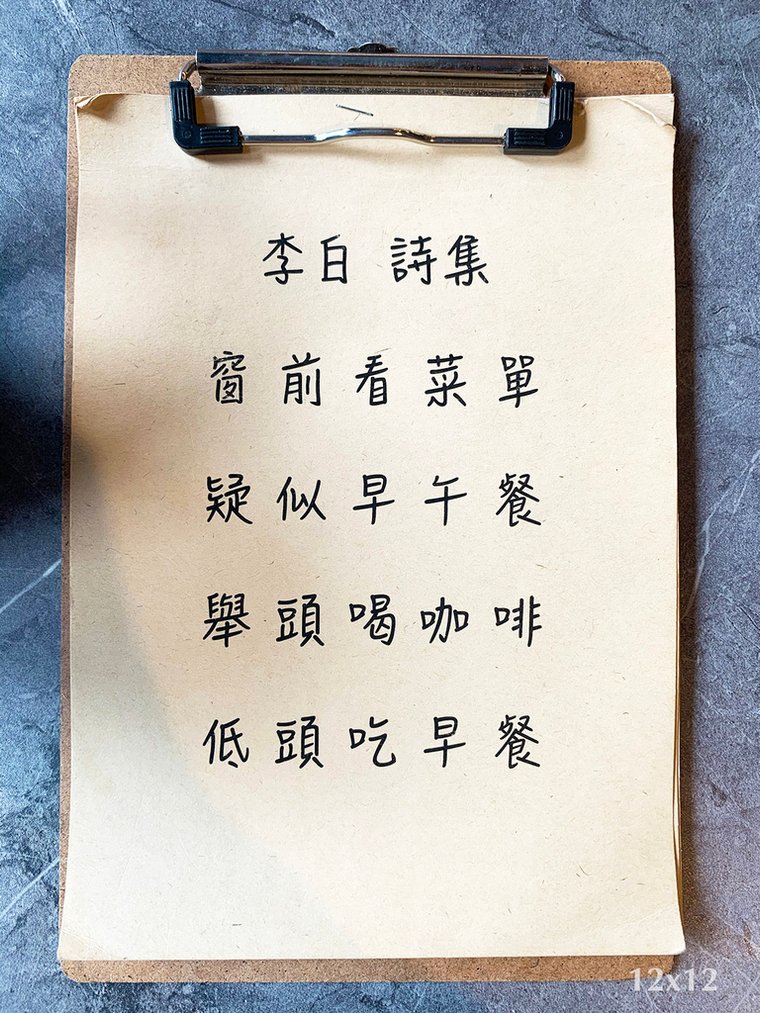 李白 詩集
窗前看菜單
疑似早午餐
舉頭喝咖啡
低頭吃早餐
12x12